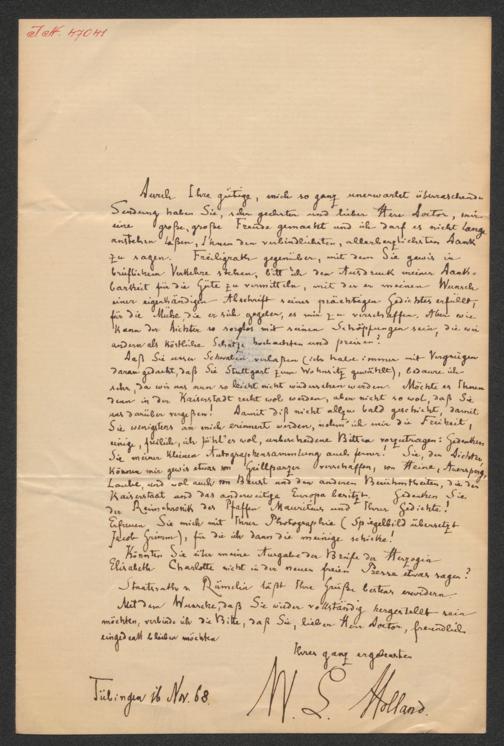 J.N. 47041
Durch Ihre gütige, mich so ganz unerwartet überraschende
Sendung haben Sie, sehr geehrter und lieber Herr Doctor, mir
eine große, große Freude gemacht und ich darf es nicht lange
anstehen laßen, Ihnen den verbindlichsten, allerherzlichsten Dank
zu sagen. Freiligrath gegenüber, mit dem Sie gewis in
brieflichem Verkehre stehen, bitt' ich den Ausdruck meiner Dank-
barkeit für die Güte zu vermitteln, mit der er meinen Wunsch
einer eigenhändigen Abschrift seines prächtigen Gedichtes erfüllt,
für die Mühe, die er sich gegeben, es mir zu verschaffen. Aber wie
kann der Dichter so sorglos mit seinen Schöpfungen sein, die wir
andern als köstliche Schätze hochachten und preisen!
Daß Sie unser Schwaben verlaßen (ich habe immer mit Vergnügen
daran gedacht, daß Sie Stuttgart zum Wohnsitz gewählt), bedaure ich
sehr, da wir uns nun so leicht nicht wiedersehen werden. Möcht es Ihnen
denn in der Kaiserstadt recht wol werden, aber nicht so wol, daß Sie
uns darüber vergeßen! Damit diß nicht allzu bald geschieht, damit
Sie wenigstens an mich erinnert werden, nehm' ich mir die Freiheit,
einige, freilich, ich fühl' es wol, unbescheidene Bitten vorzutragen: Gedenken
Sie meiner kleinen Autographensammlung auch ferner! Sie, der Dichter
können mir gewis etwas von Grillparzer verschaffen, von Heine, Auersperg,
Laube, und wol auch von Beust und den anderen Berühmtheiten, die die
Kaiserstadt und das anderweitige Europa besitzt. Gedenken Sie
der Reimchronik des Pfaffen Mauritius und Ihrer Gedichte!
Erfreuen Sie mich mit Ihrer Photographie (Spiegelbild übersetzt
Jacob Grimm), für die ich dann die meinige schicke!
Könnten Sie über meine Ausgabe der Briefe der Herzogin
Elisabeth Charlotte nicht in der neuen freien Presse etwas sagen?
Staatsrath v. Rümelin läßt Ihre Grüße bestens erwidern.
Mit dem Wunsche, daß Sie wieder vollständig hergestellt sein
möchten, verbinde ich die Bitte, daß Sie, lieber Herr Doctor, freundlich
eingedenk bleiben möchten
Ihres ganz ergebensten
Tübingen 16 Nov. 68.
W. L. Holland.